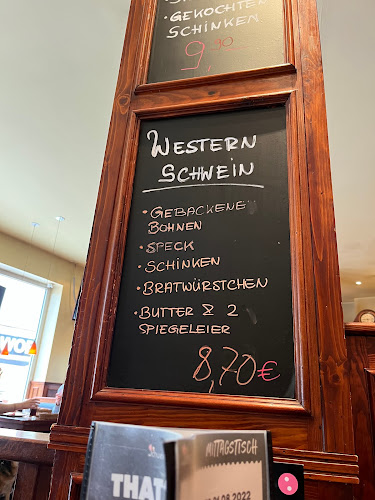 GEKOCHTER
SCHINKEN
9,90
WESTERN
SCHWEIN
• GEBACKENE
BOHNEN
• SPECK
• SCHINKEN
• BRATWÜRSTCHEN
• BUTTER & 2
SPIEGELEIER
8,70€
MITTAGSTISCH
THAT
08.2022